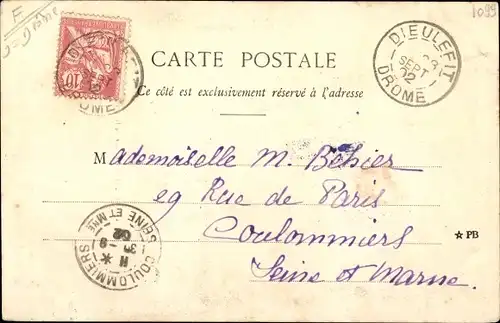 F
= Drôme
1099
CARTE POSTALE
Ce côté est exclusivement réservé à l'adresse
DIEULEFIT
SEPT
02
DROME
10
DROME
Mademoiselle M. Bohier
69 Rue de Paris
Coulommiers
Seine et Marne.
★ PB
COULOMMIERS
SEINE ET MNE
02